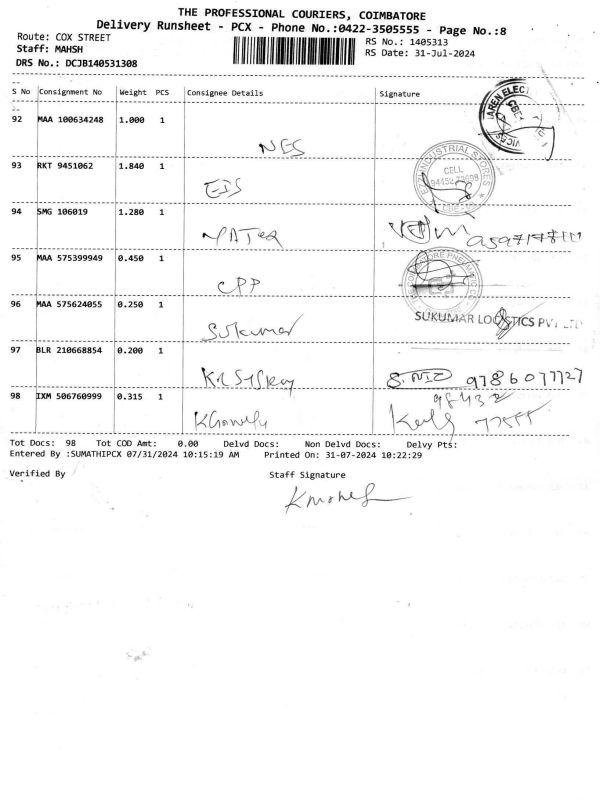 THE PROFESSIONAL COURIERS, COIMBATORE
Delivery Runsheet - PCX - Phone No.:0422-3505555 - Page No.:8
Route: COX STREET
Staff: MAHSH
DRS No.: DCJB140531308
RS No.: 1405313
RS Date: 31-Jul-2024
S No Consignment No Weight PCS Consignee Details Signature
92 MAA 100634248 1.000 1
NES
93 RKT 9451062 1.840 1
EIS
INDUSTRIAL STORES
CELL
94 SMG 106019 1.280 1
95 MAA 575399949 0.450 1
CPP
96 MAA 575624055 0.250 1
Sukumar
SUKUMAR LOGISTICS PVT LTD
97 BLR 210668854 0.200 1
9786077727
98 IXM 506760999 0.315 1
98432
77555
Tot Docs: 98 Tot COD Amt: 0.00 Delvd Docs: Non Delvd Docs: Delvy Pts:
Entered By :SUMATHIPCX 07/31/2024 10:15:19 AM Printed On: 31-07-2024 10:22:29
Verified By Staff Signature